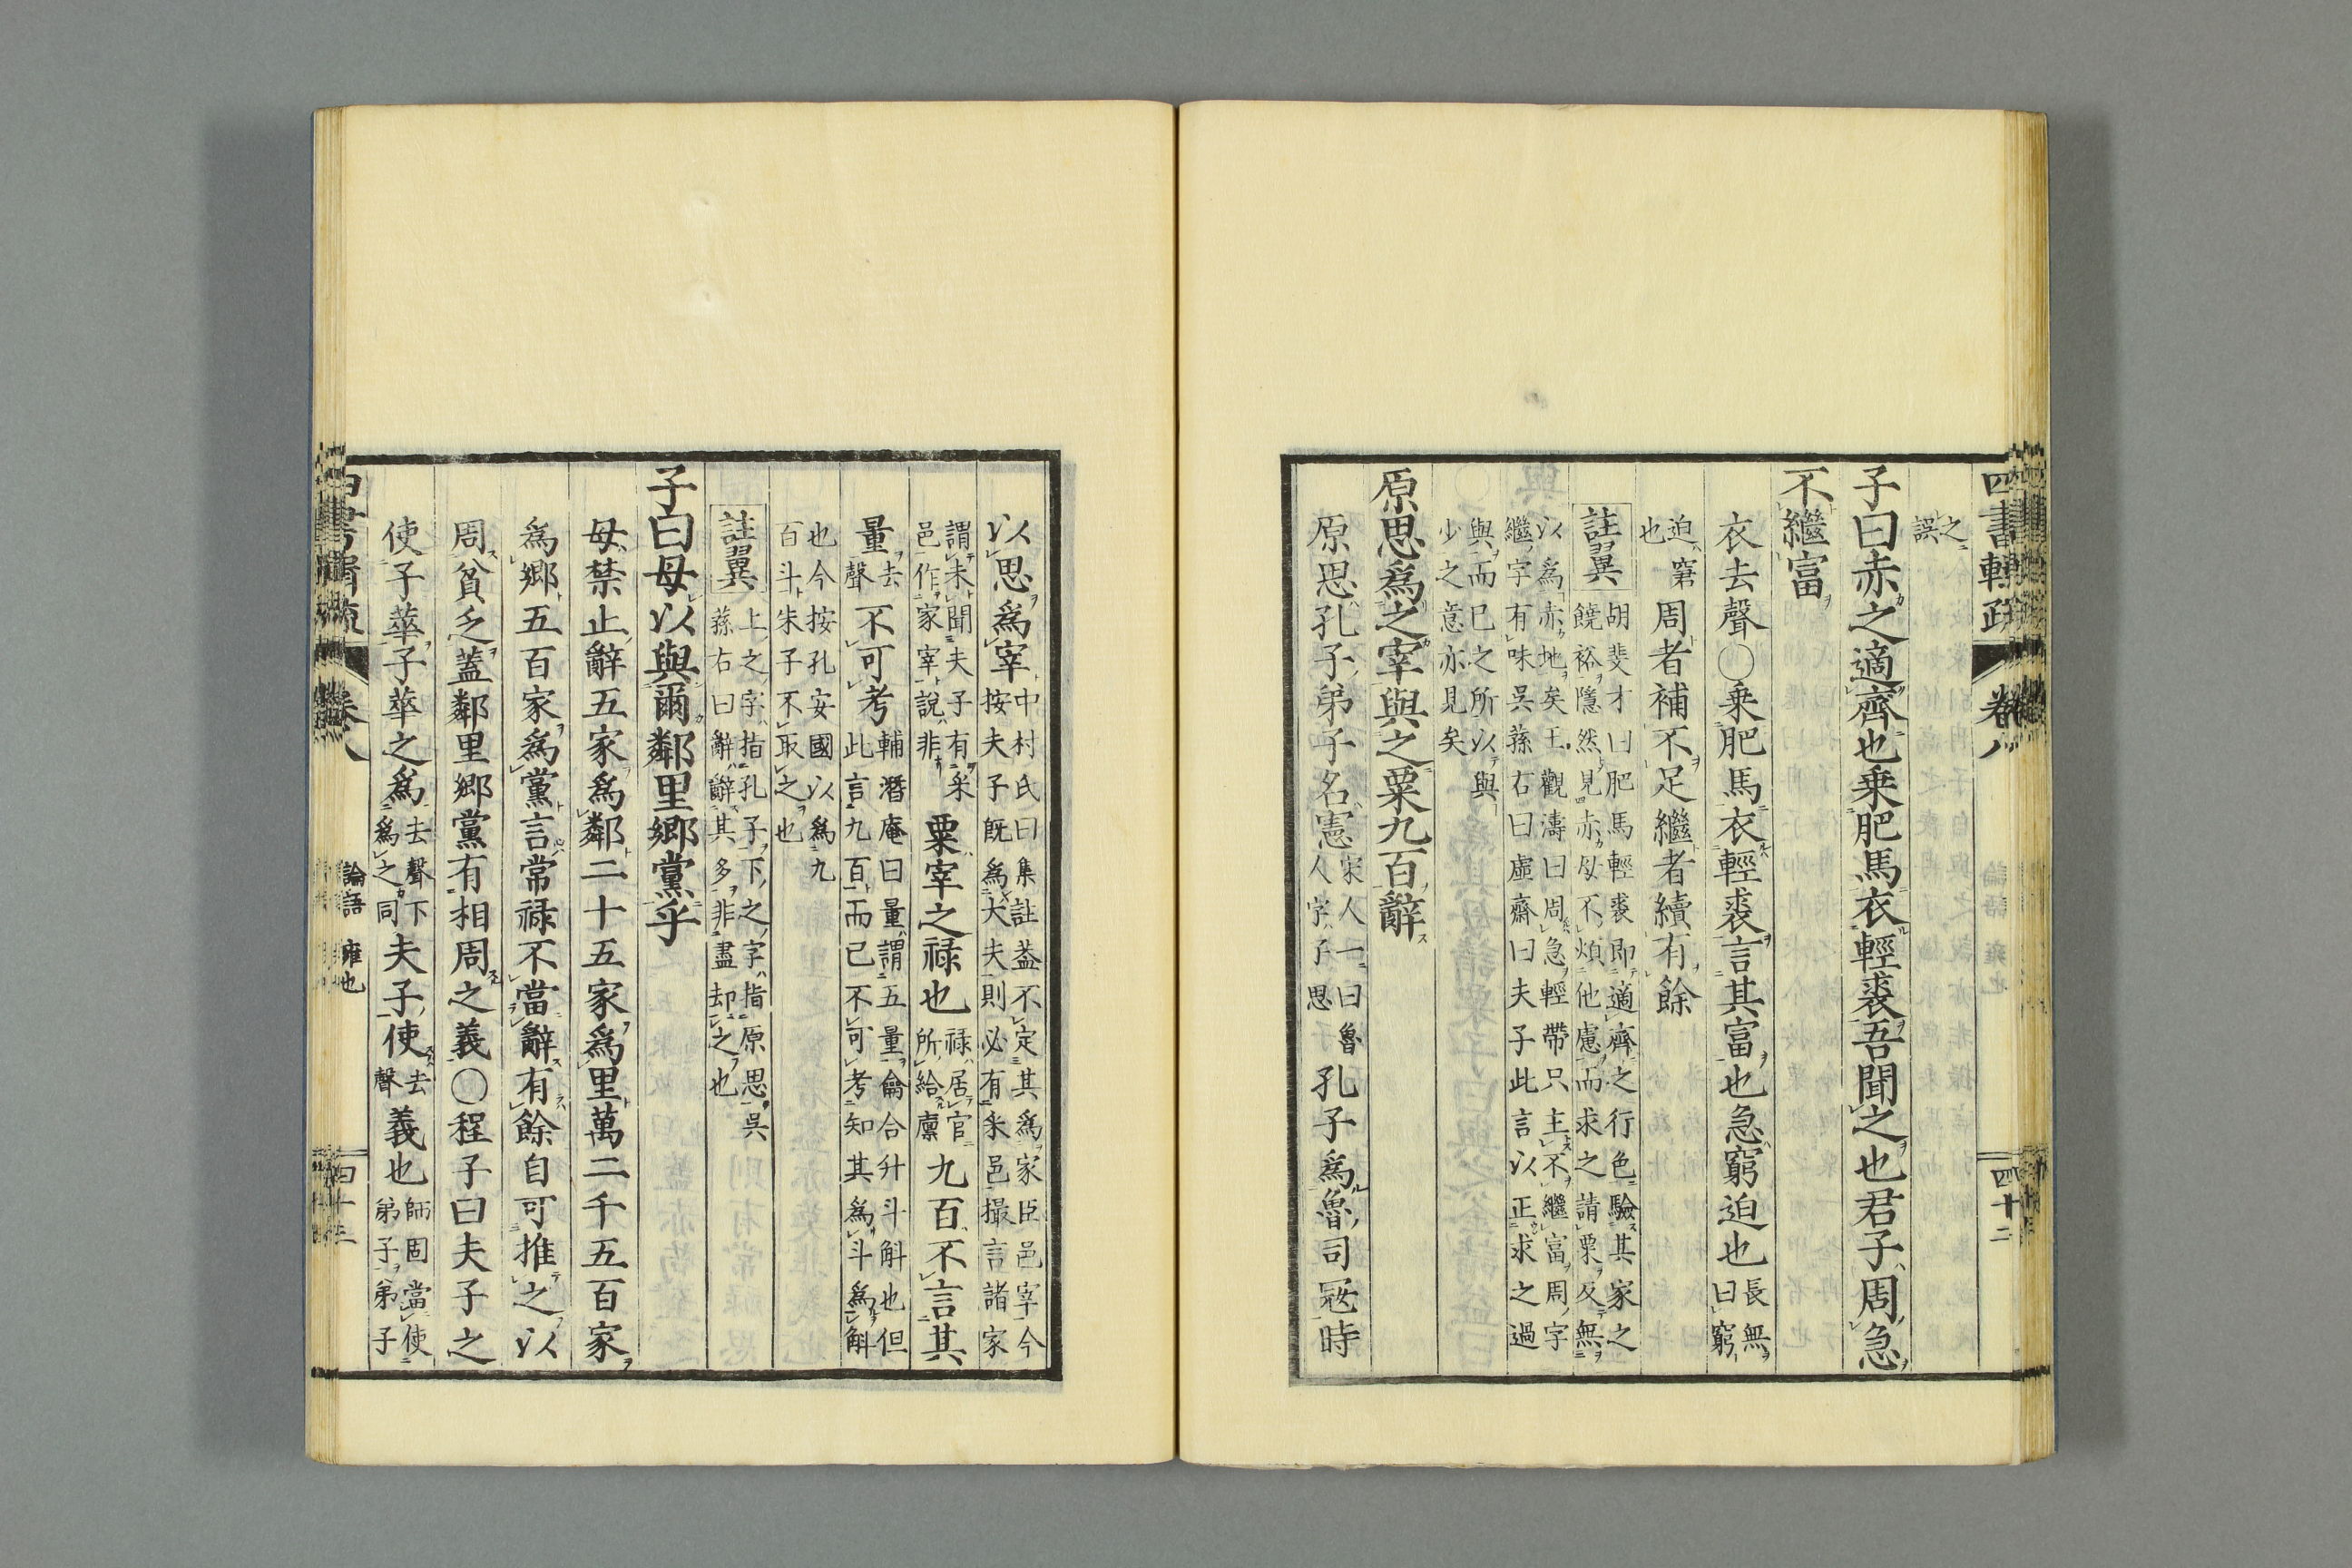 四書輯疏 卷八 論語 雍也 四十二
之
誤
子曰赤之適齊也乗肥馬衣輕裘吾聞之也君子周急
不繼富
衣去聲〇乗肥馬衣輕裘言其富也急窮迫也長無
曰窮
迫
也
窘
周者補不足繼者續有餘
註翼
胡斐才曰肥馬輕裘即適齊之行色驗其家之
饒裕隱然見赤母不煩他慮而求之請粟反無
以爲赤地矣王觀濤曰周急輕帶只主不繼富周字
繼字有味呉蓀右曰虛齋曰夫子此言以正求之過
與而已之所以與
少之意亦見矣
原思爲之宰與之粟九百辭
原思孔子弟子名憲
宋人一曰魯
人字子思
孔子爲魯司寇時
以思爲宰
中村氏曰集註盖不定其爲家臣邑宰今
按夫子既爲大夫則必有釆邑撮言諸家
謂未聞夫子有采
邑作家宰說非
粟宰之祿也
祿居官
所給廩
九百不言其
量
去
聲
不可考
輔潛庵曰量謂五量龠合升斗斛也但
此言九百而已不可考知其爲斗爲斛
也今按孔安國以爲九
百斗朱子不取之也
註翼
上之字指孔子下之字指原思呉
蓀右曰辭辭其多非盡却之也
子曰毋以與爾鄰里鄉黨乎
毋禁止辭五家爲鄰二十五家爲里萬二千五百家
爲鄉五百家爲黨言常祿不當辭有餘自可推之以
周貧乏蓋鄰里鄉黨有相周之義〇程子曰夫子之
使子華子華之爲
去聲下
爲之同
夫子使
去
聲
義也
師固當使
弟子弟子
卷八 論語 雍也 四十三